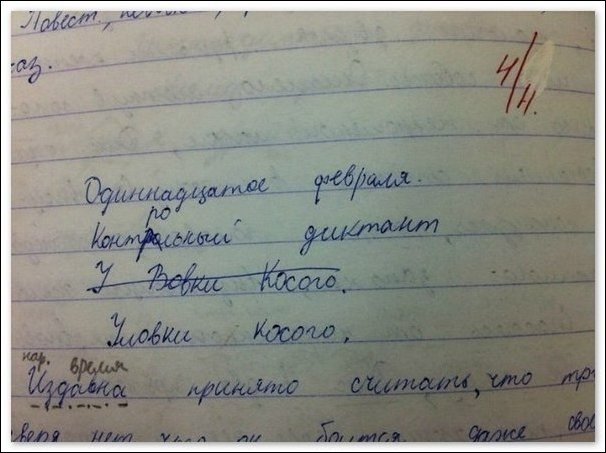 Повест., невоскл.,
4/4.
Одиннадцатое февраля.
Контрольный диктант
У Вовки Косого.
Уловки косого.
нар. время
Издавна принято считать, что
зверя нет, чего он боится даже